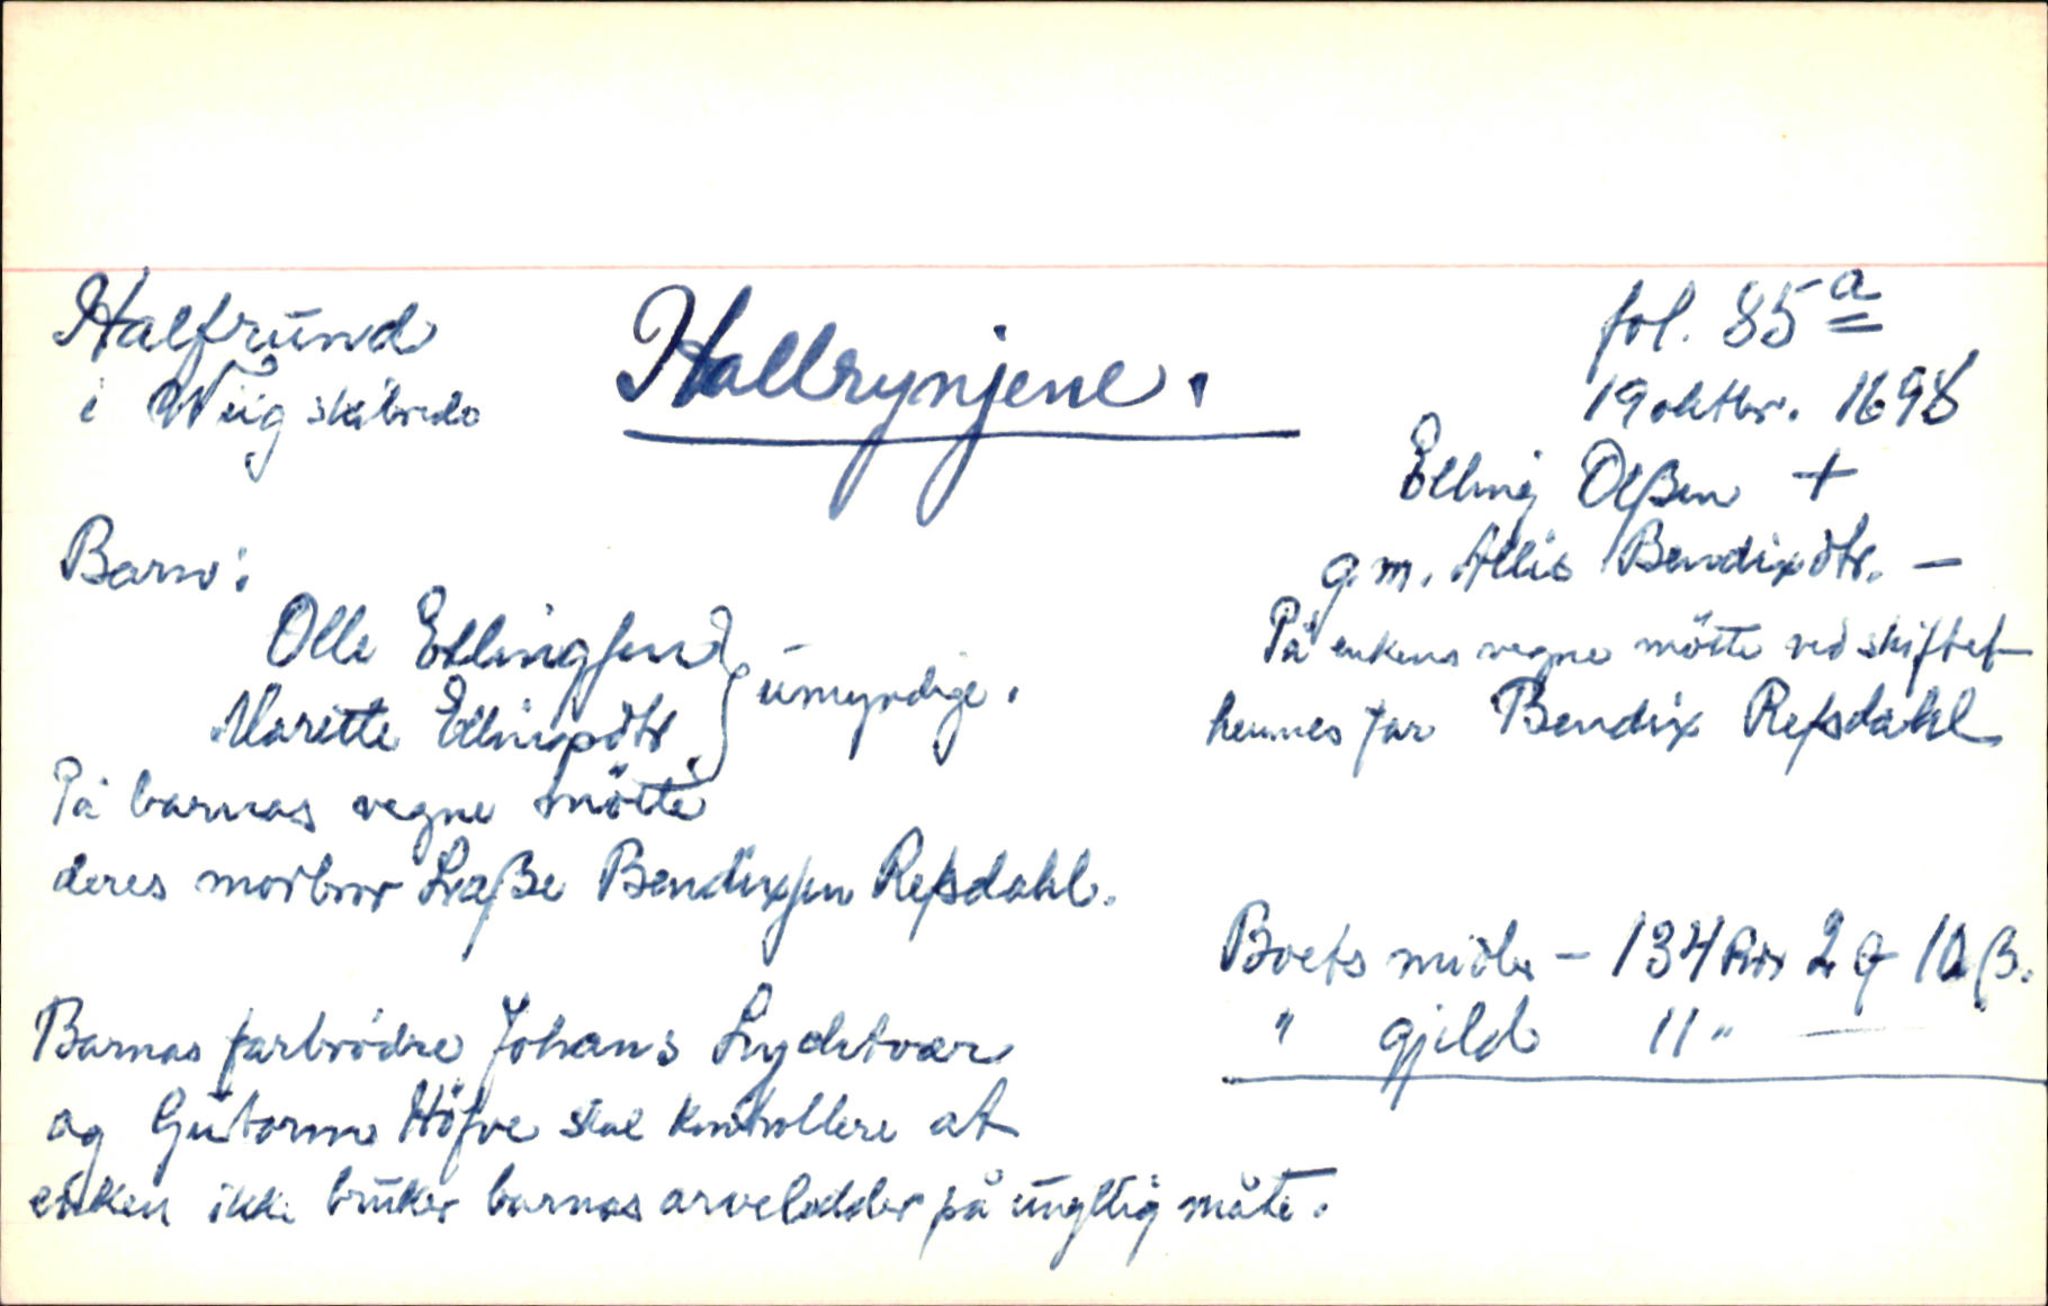 Halfrund
i Wiig skibrede
Hallrynjene.
fol. 85 a
19 oktbr. 1698
Elling Olßen +
g.m. Allis Bendixdtr. —
På enkens vegne mötte ved skiftet
hennes far Bendix Refsdahl
Barn:
Olle Ellingsen
Maritte Ellingsdtr.
} umyndige.
På barnas vegne mötte
deres morbror Laße Bendixsen Refsdahl.
Boets midler – 134 Rdr 2 10 ß.
" gjeld 11 " —
Barnas farbrödre Johans
og Gutorm Höfve skal kontrollere at
enken ikke bruker barnas arvelodder på unyttig måte.